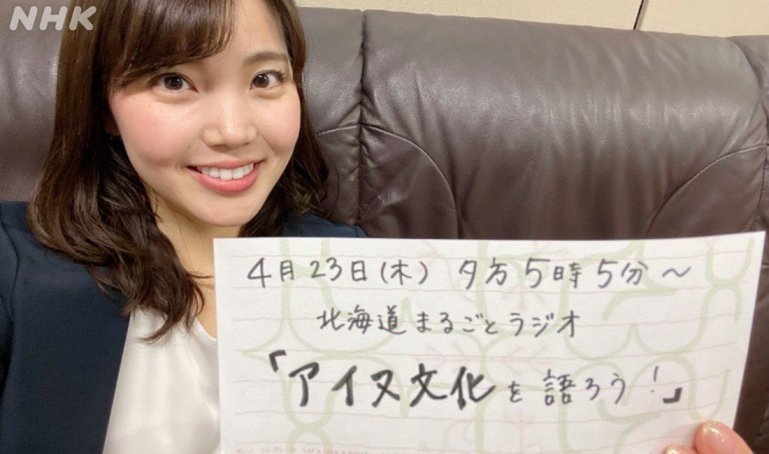 NHK
4月23日(木) 夕方5時5分～
北海道まるごとラジオ
「アイヌ文化を語ろう!」